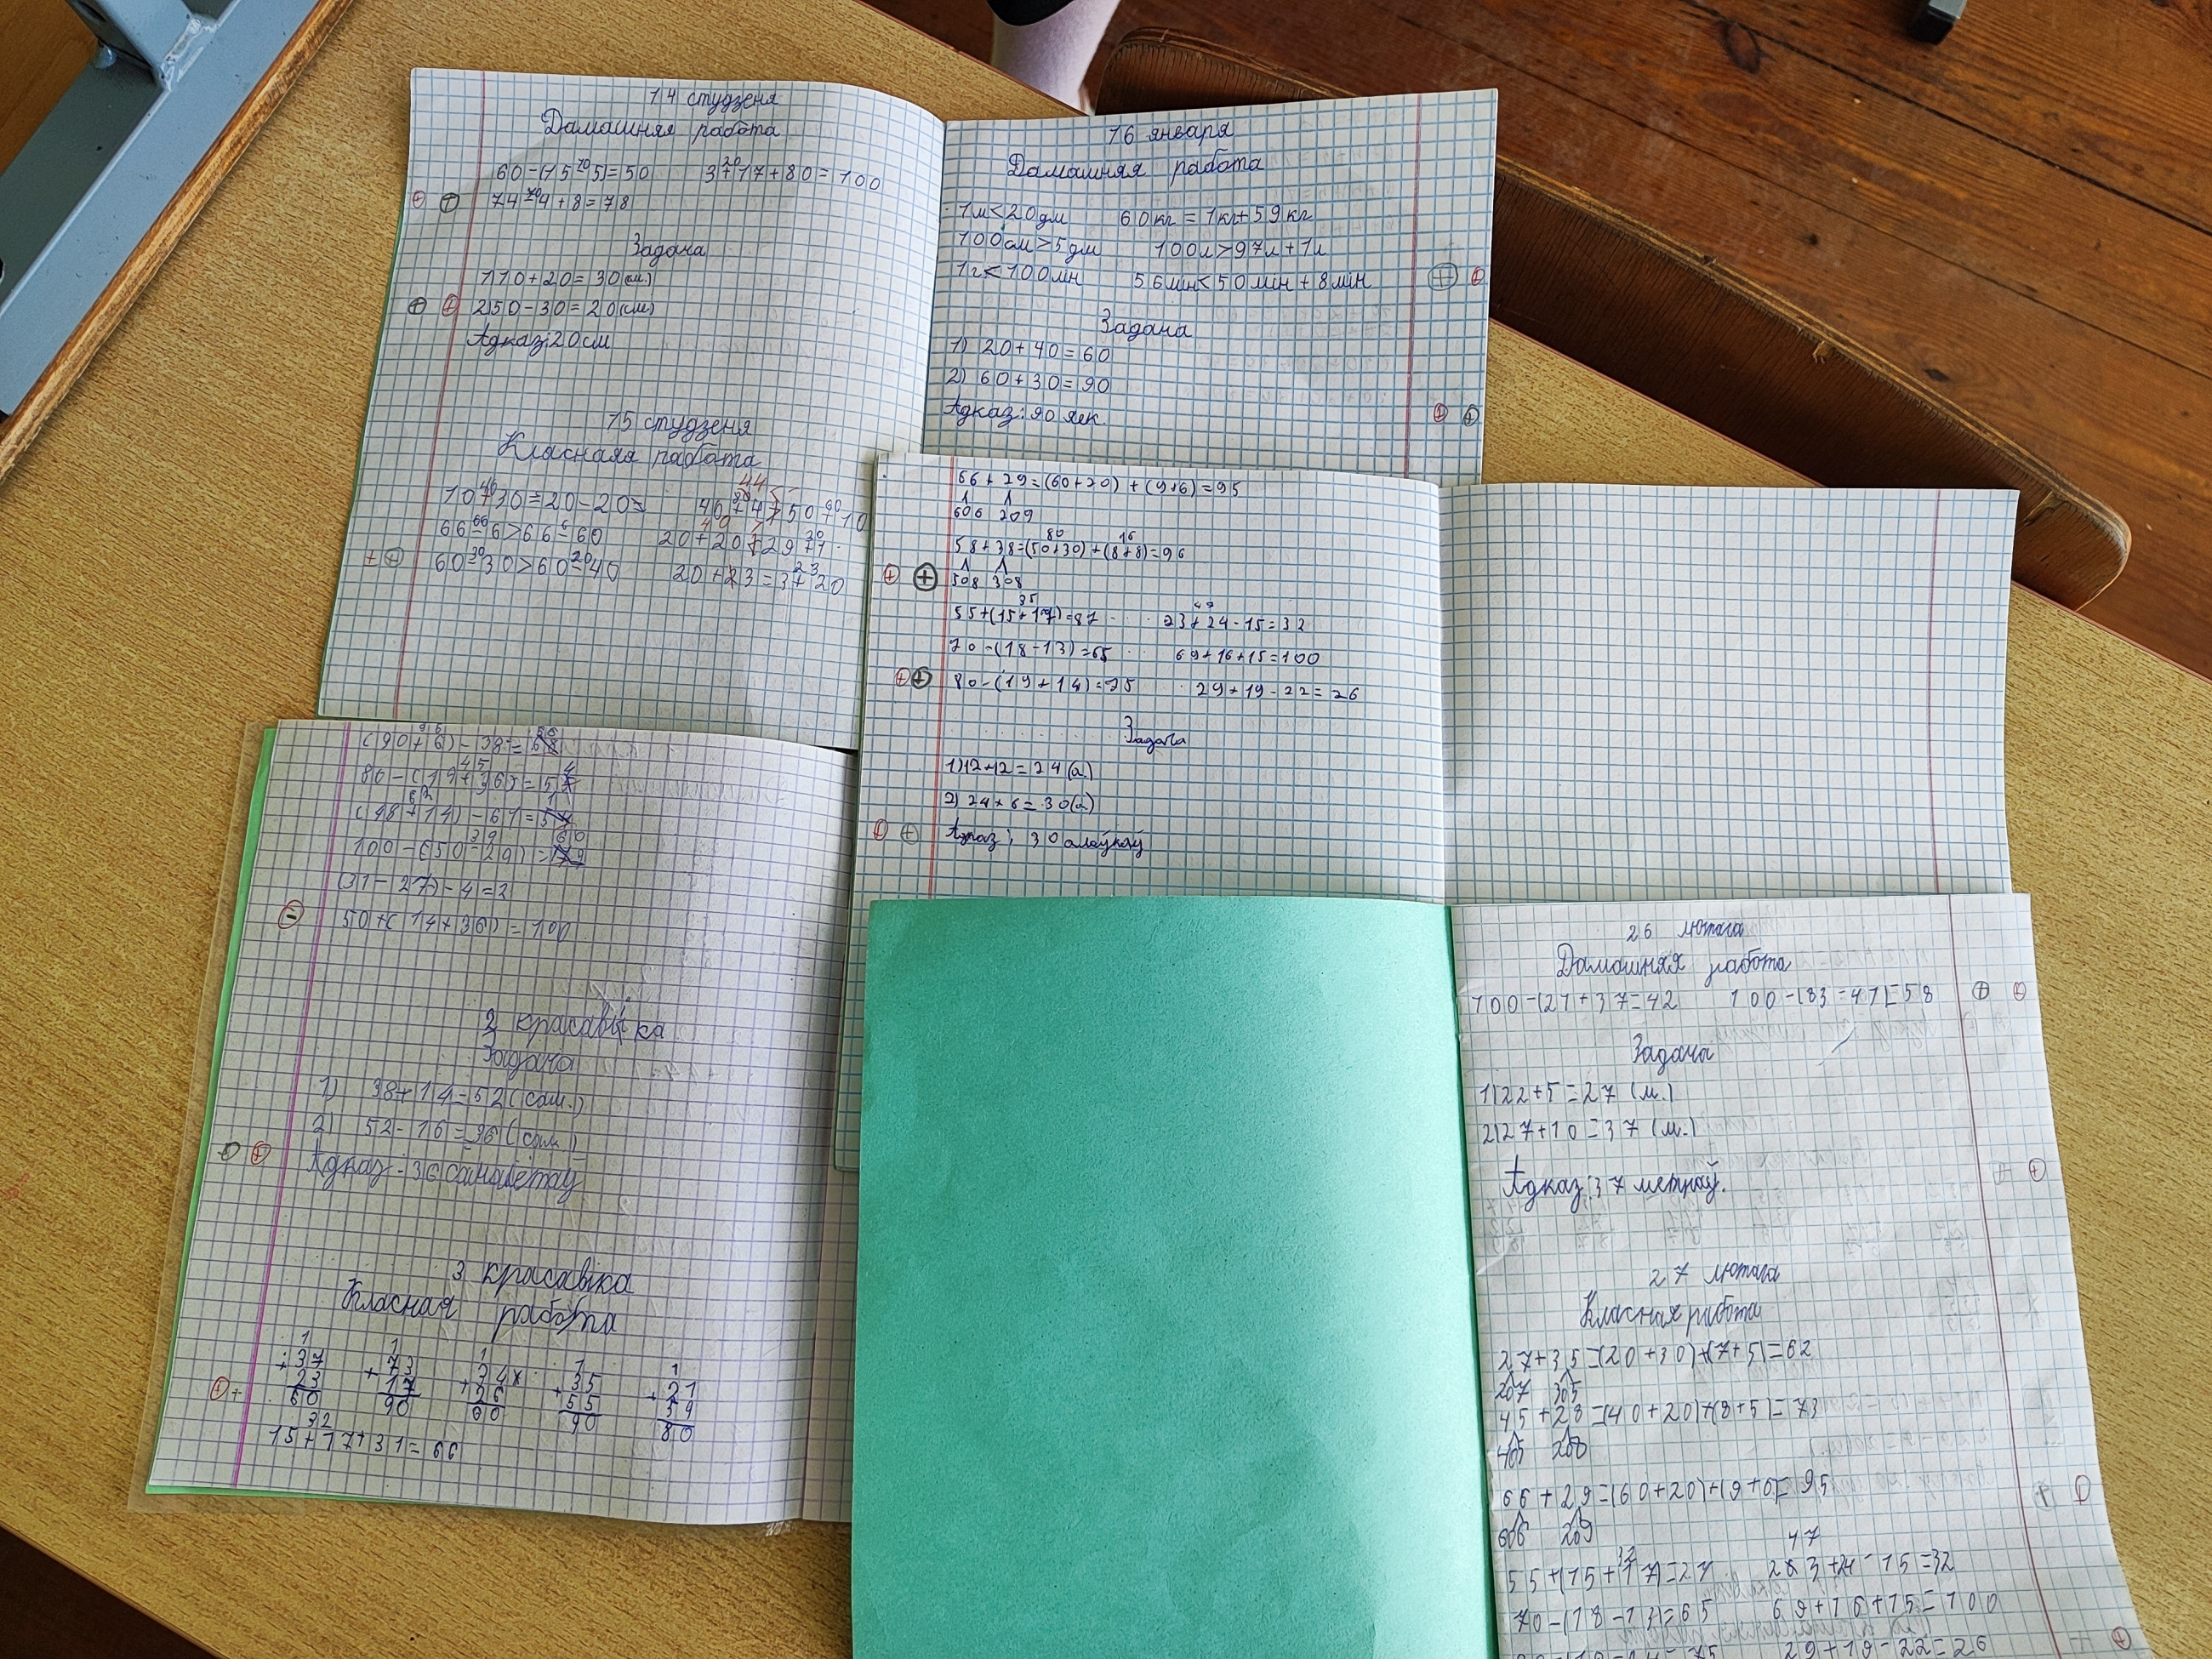 14 студзеня
Дамашняя работа
60-(15-5)=50 3+17+80=100
74-4+8=78
Задача
1)10+20=30(см.)
2)50-30=20(см)
Адказ:20см
15 студзеня
Класная работа
66-6>66-60
60-30>60-40 20+23=3+20
16 января
Дамашняя работа
1м<20дм 60кг=1кг+59кг
100см>5дм 100л>97л+1л
1г<100мін 56мін<50мін+8мін
Задача
1) 20+40=60
2) 60+30=90
Адказ:90 яек.
66+29=(60+20)+(9+6)=95
606 209
80 16
58+38=(50+30)+(8+8)=96
508 308
47
55+(15+17)=87 23+24-15=32
70-(18-13)=65 69+16+15=100
80-(19+14)=75 29+19-22=26
Задача
1)12+12=24(а.)
2) 24+6=30(а)
Адказ: 30 алоўкаў
(31-27)-4=2
50+(14+36)=100
3 красавіка
Задача
1) 38+14=52(сам.)
2) 52-16=36(сам.)
Адказ: 36 самалётаў
3 красавіка
Класная работа
1 1 1 1 1
+37 +73 +34 +35 +21
23 17 26 55 59
60 90 60 90 80
32
15+17+31=66
26 лютага
Дамашняя работа
100-(21+37=42 100-(83-41)=58
Задача
1)22+5=27 (м.)
2)27+10=37 (м.)
Адказ:37 метраў.
27 лютага
Класная работа
27+35=(20+30)+(7+5)=62
207 305
45+28=(40+20)+(8+5)=73
405 208
66+29=(60+20)+(9+6)=95
606 209
47
32
55+(15+17)=27 23+24-15=32
70-(18-13)=65 69+16+15=100
29+19-22=26